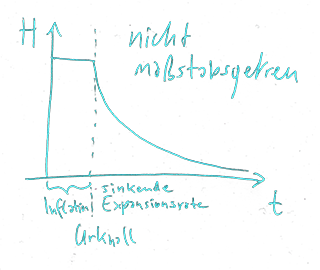 H
nicht
maßstabsgetreu
t
Inflation
sinkende
Expansionsrate
Urknall